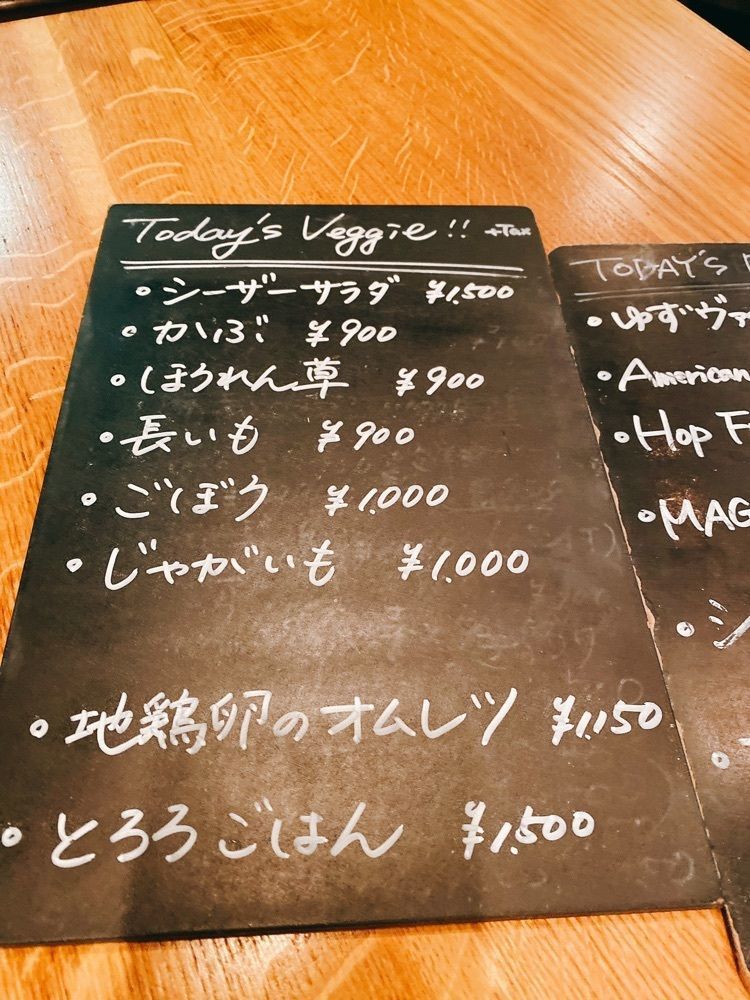 Today's Veggie!! +Tax
• シーザーサラダ ¥1,500
• かぶ ¥900
• ほうれん草 ¥900
• 長いも ¥900
• ごぼう ¥1,000
• じゃがいも ¥1,000
• 地鶏卵のオムレツ ¥1,150
• とろろごはん ¥1,500
TODAY'S
• ゆずヴァ
• American
• Hop F
• MAG
• シ